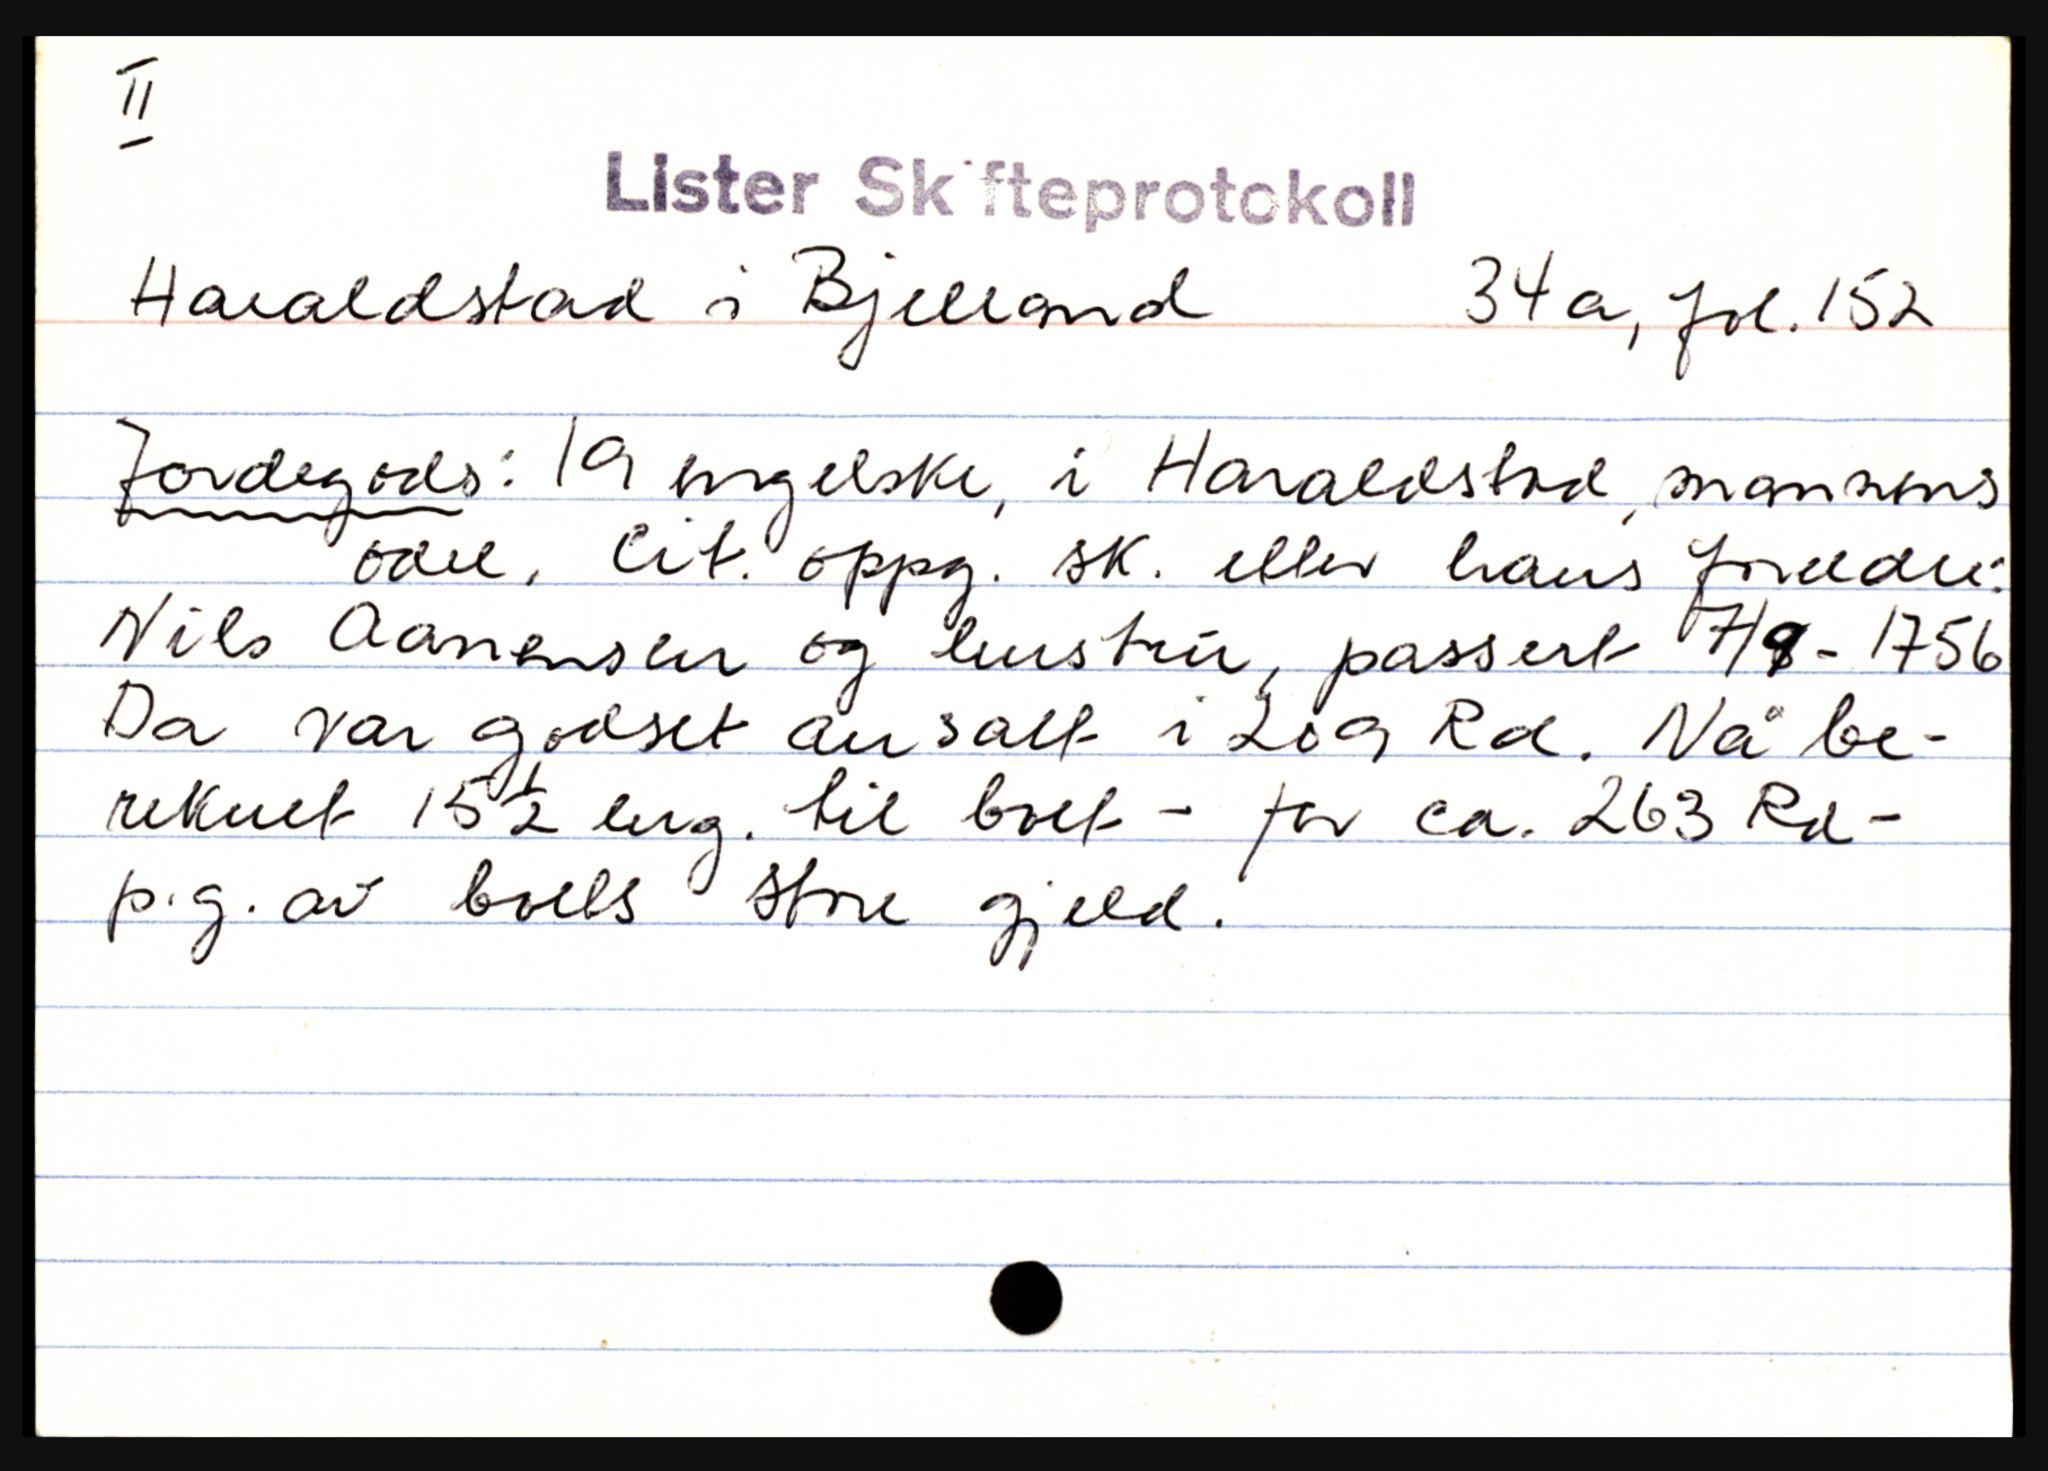 II
Lister Skifteprotokoll
Haraldstad i Bjelland 34a, fol. 152
Jordegods: 19 engelske, i Haraldstad, mannens
odel, lit. oppg. sk. etter hans foreldre:
Nils Aanensen og hustru, passert 7/9 - 1756
Da var godset ansatt i 209 Rd. Nå be-
reknet 15 1/2 eng. til boet - for ca. 263 Rd -
p.g. av boets store gjeld.